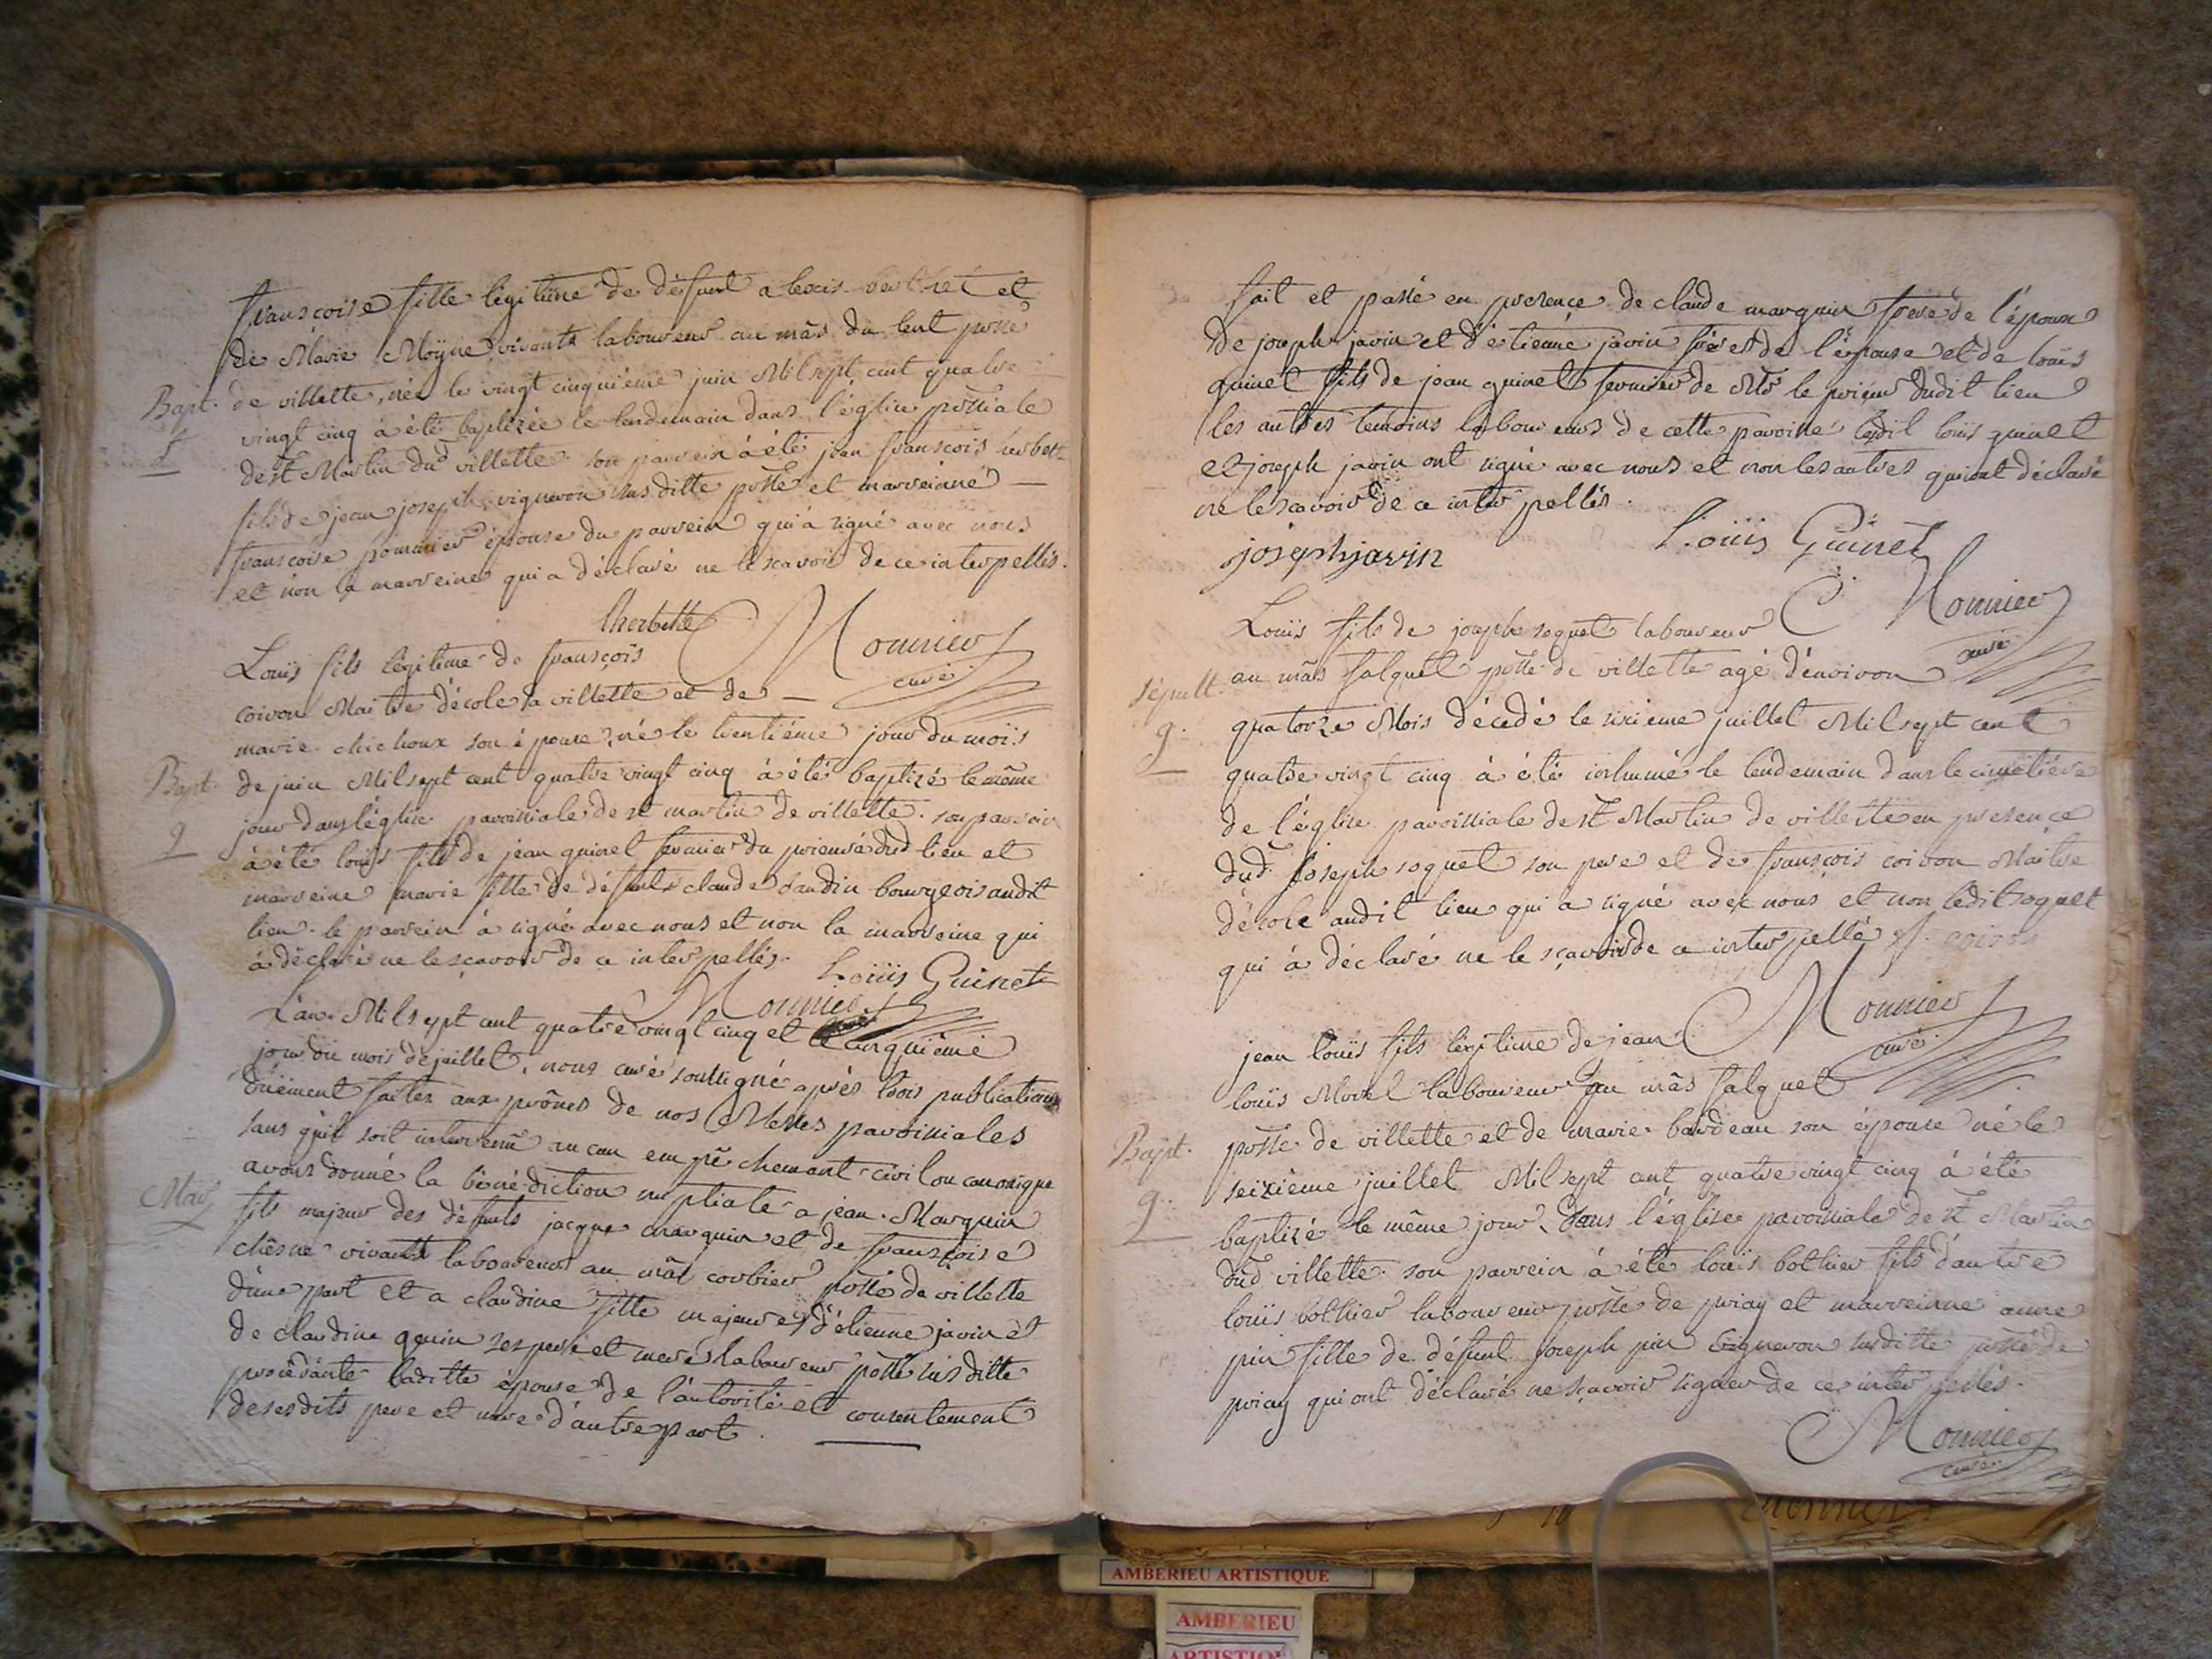 françoise fille légitime de défunt alexis berthet et
de Marie Moÿne vivants laboureur au mâs du lent psse
Bapt. de villette, née le vingt cinquiéme juin Mil sept cent quatre
vingt cinq à été baptizée le lendemain dans l'églize pssiale
f
de st Martin dud villette. son parrein à été jean françois herbette
fils de jean joseph vigneron susditte psse et marreinne
françoise pommier épouse du parrein qui à signé avec nous
et non la marreine qui a déclaré ne le scavoir de ce interpellés.
lherbette Monnier
curé
Louis fils légitime de françois
coiron Maitre d'école a villette et de
marie chichoux son épouse, né le trentiéme jour du mois
Bapt. de juin Mil sept cent quatre vingt cinq à été baptizé le même
g jour dans l'églize paroissiale de st martin de villette. son parrein
à été louïs fils de jean guinet fermier du prieuré dud lieu et
marreine marie fille de défunt claude baudin bourgeois audit
lieu. le parrein à signé avec nous et non la marreine qui
à déclaré ne le scavoir de ce interpellés. Loüis Guinet
Monnier
curé
L'an Mil sept cent quatre vingt cinq et le cinquiéme
jour du mois de juillet, nous curé soussigné après trois publications
düement faites aux prônes de nos Messes paroissiales
sans qu'il soit intervenu aucun empêchement civil ou canonique
Mar. avons donné la bénédiction nuptiale a jean Marquin
fils majeur des défunts jacque marquin et de françoise
chêsne vivants laboureur au mâs corbier psse de villette
d'une part et a claudine fille majeure d'étienne javin et
de claudine quin ses pere et mere laboureur psse susditte
procédante laditte épouse de l'autorité et consentement
de sesdits pere et mere d'autre part.
fait et passé en presence de claude marquin frere de l'époux
de joseph javin et d'étienne javin freres de l'épouse et de loüis
guinet fils de jean guinet fermier de Mr le prieur dudit lieu
les autres temoins laboureurs de cette paroisse ledit loüis guinet
et joseph javin ont signé avec nous et non les autres qui ont déclaré
ne le scavoir de ce interpellés.
joseph javin Loüis Guinet
Monnier
curé
Louïs fils de joseph soquet laboureur
sépult. au mâs falquet psse de villette agé d'environ
g. quatorze Mois décedé le sixieme juillet Mil sept cent
quatre vingt cinq à été inhumé le lendemain dans le cimetiére
de l'églize paroissiale de st Martin de villette en presence
dud. Joseph soquet son pere et de françois coiron Maitre
d'école audit lieu qui a signé avec nous et non ledit soquet
qui à déclaré ne le sçavoir de ce interpellé f. coiron
Monnier
curé
jean loüis fils légitime de jean
loüis Morel laboureur au mâs falquet
Bapt. psse de villette et de marie bardeau son épouse né le
g. seizième juillet Mil sept cent quatre vingt cinq à été
baptizé le même jour dans l'églize paroissiale de st Martin
dud villette. son parrein à été louïs bothier fils d'autre
louïs bothier laboureur psse de priay et marreinne anne
pin fille de défunt joseph pin vigneron susditte psse de
priay qui ont déclaré ne sçavoir signer de ce interpellés.
Monnier
curé
monnier
AMBERIEU ARTISTIQUE
AMBERIEU
ARTISTIQUE